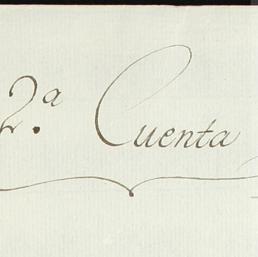 2.ª Cuenta